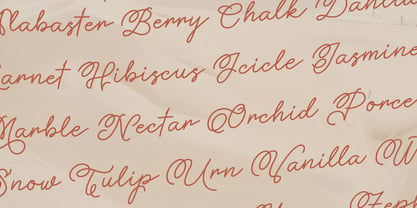 Alabaster Berry Chalk Dahlia
Garnet Hibiscus Icicle Jasmine
Marble Nectar Orchid Porce
Snow Tulip Urn Vanilla W
Zeph